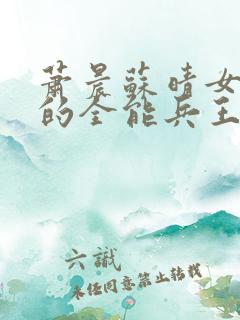 蕭晨蘇晴女
的全能兵王
六識
未任同意禁止转载